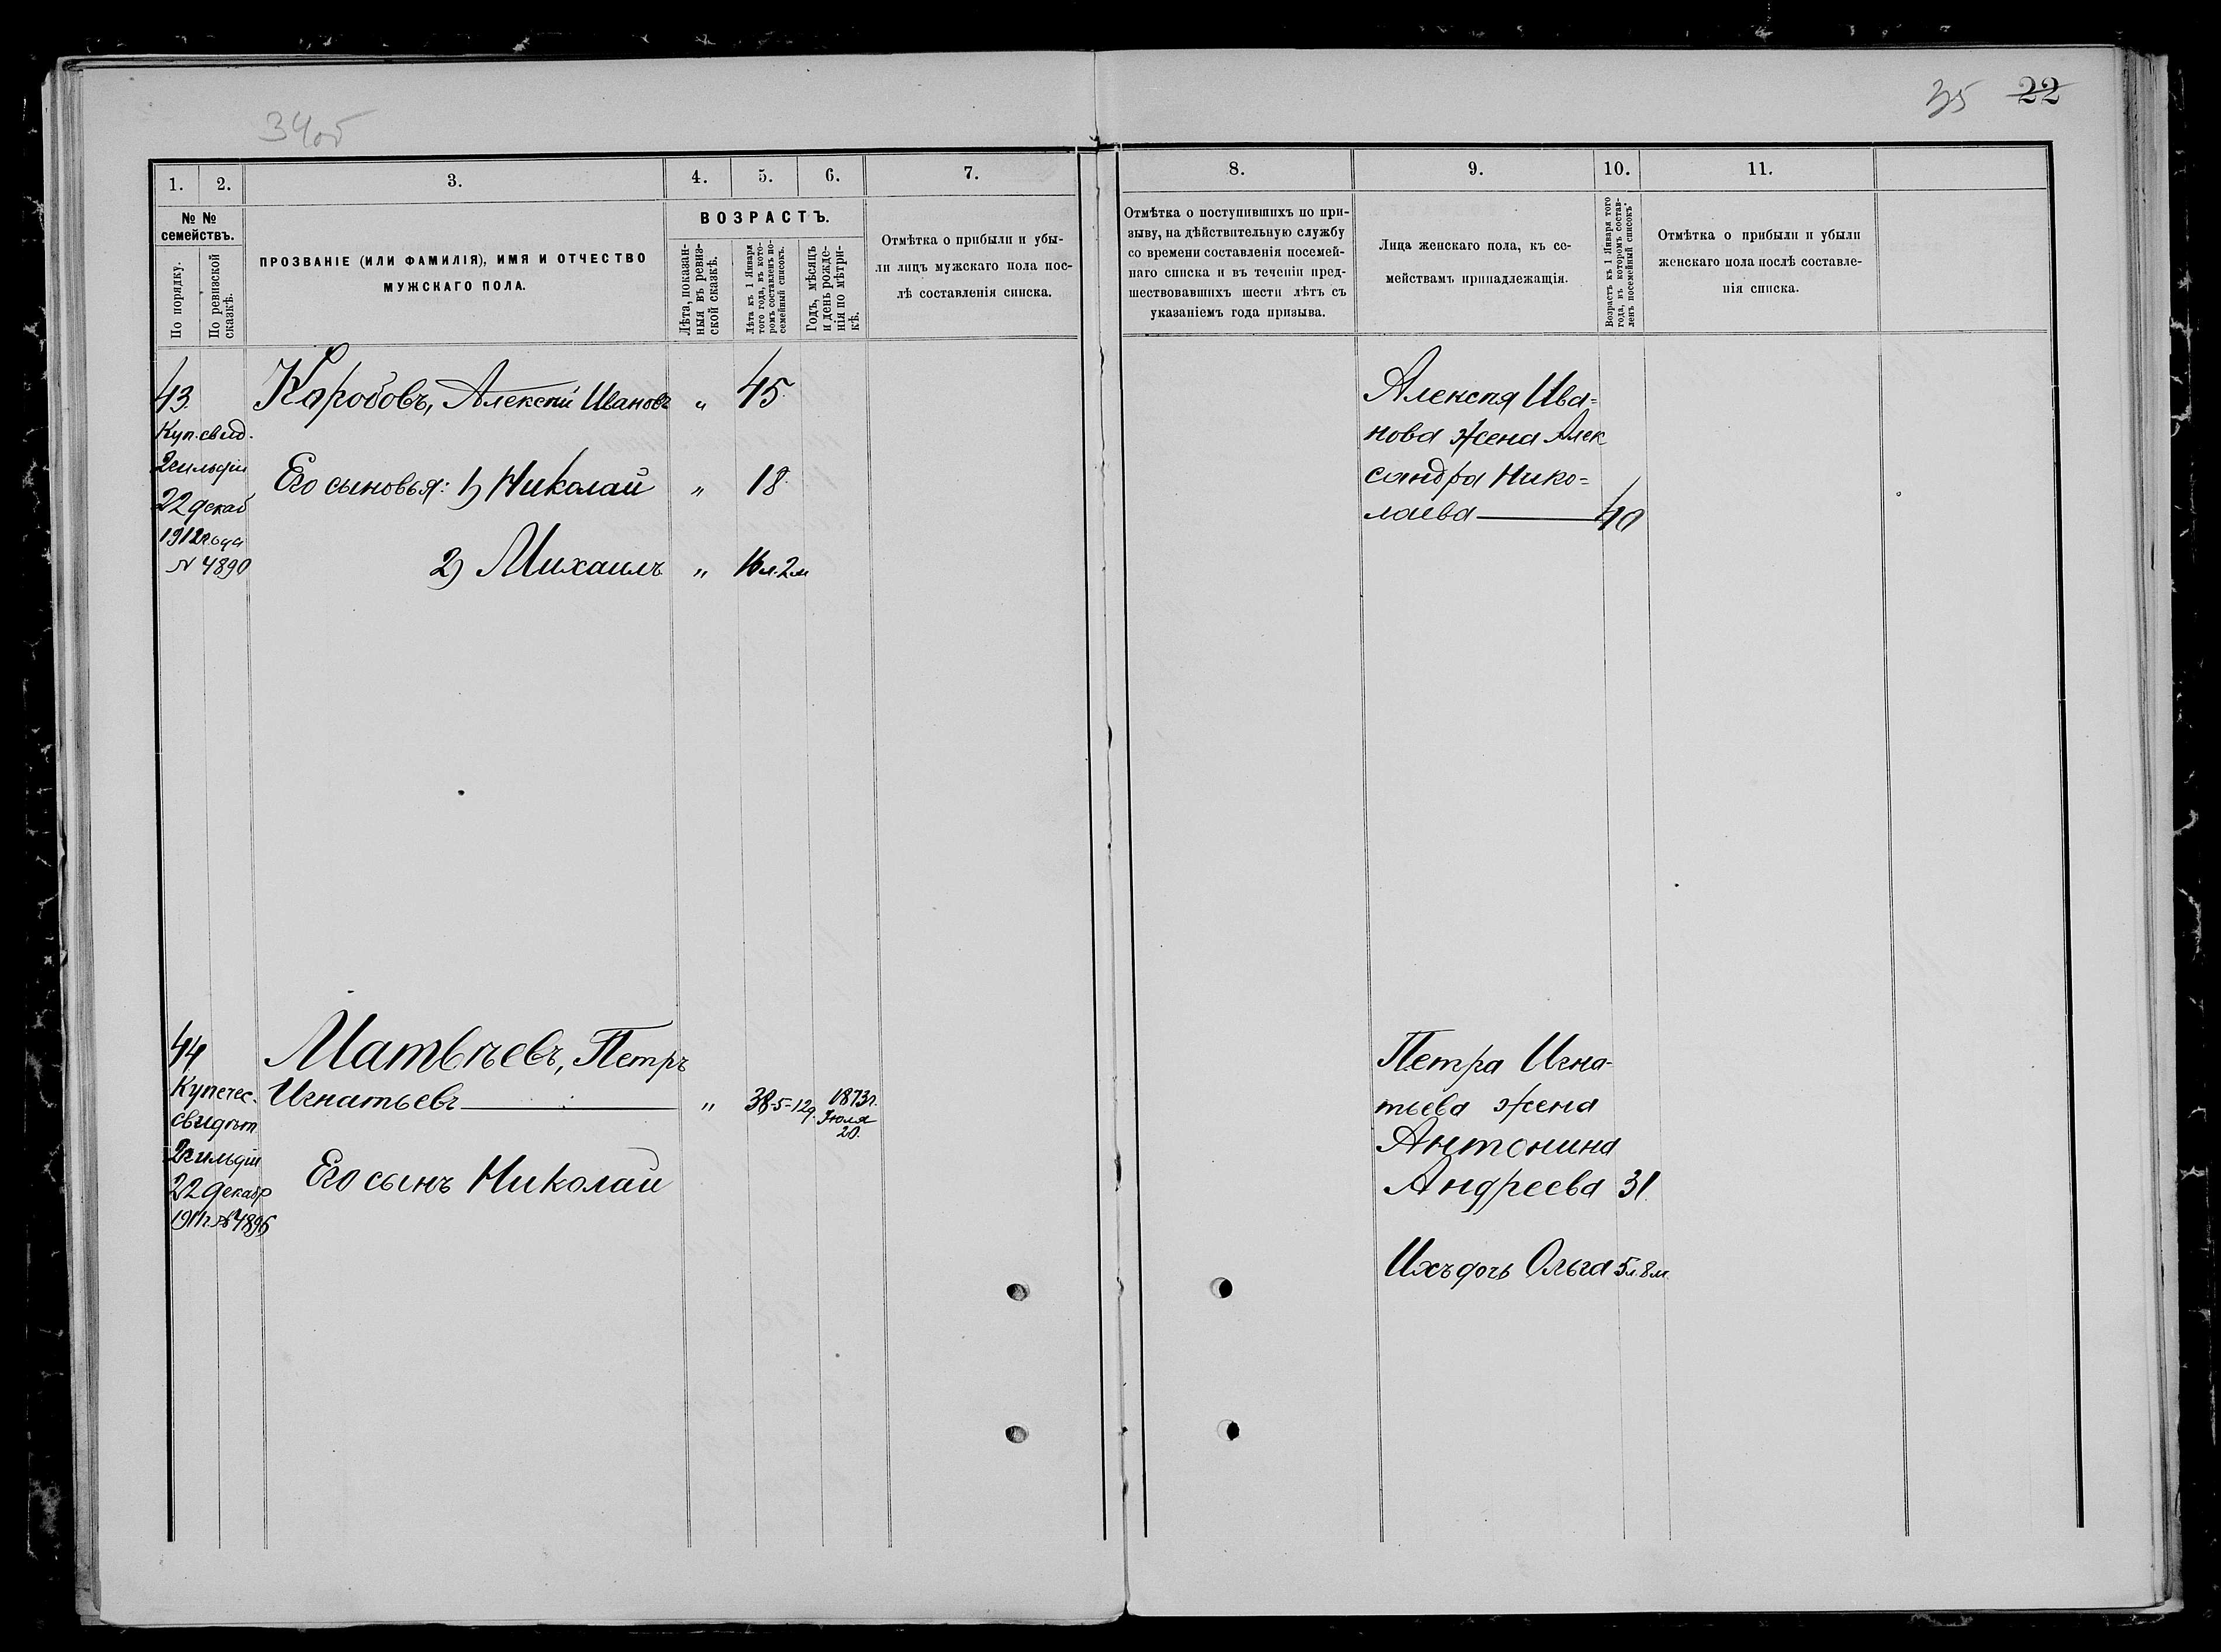 34об
35 22
1. 2. 3. 4. 5. 6. 7.
№ №
семействъ.
По порядку.
По ревизской
сказкѣ.
ПРОЗВАНІЕ (ИЛИ ФАМИЛІЯ), ИМЯ И ОТЧЕСТВО
МУЖСКАГО ПОЛА.
ВОЗРАСТЪ.
Лѣта, показан-
ныя въ ревиз-
ской сказкѣ.
Лѣта къ 1 Января
того года, въ кото-
ромъ составленъ по-
семейный списокъ.
Годъ, мѣсяцъ
и день рожде-
нія по мѣтри-
кѣ.
Отмѣтка о прибыли и убы-
ли лицъ мужскаго пола пос-
лѣ составленія списка.
43.
Куп. свид.
2 гильдіи
22 декаб
1912 года
№ 4890
Коробовъ, Алексѣй Ивановъ „ 45.
Его сыновья: 1) Николай „ 18.
2) Михаилъ „ 16 л. 2 м
44
Купечес.
свидѣт
2 гильдіи
22 декабр
1911 г. № 4896
Матвѣевъ, Петръ
Игнатьевъ „ 38-5-12д. 1873 г.
Іюля
20.
Его сынъ Николай
8. 9. 10. 11.
Отмѣтка о поступившихъ по при-
зыву, на дѣйствительную службу
со времени составленія посемей-
наго списка и въ теченіи пред-
шествовавшихъ шести лѣтъ съ
указаніемъ года призыва.
Лица женскаго пола, къ се-
мействамъ принадлежащія.
Возрастъ къ 1 Января того
года, въ которомъ состав-
ленъ посемейный списокъ.
Отмѣтка о прибыли и убыли
женскаго пола послѣ составле-
нія списка.
Алексѣя Ива=
нова жена Алек
сандра Нико=
лаева 40
Петра Игна-
тьева жена
Антонина
Андреева 31.
Ихъ дочь Ольга 5 л. 8 м.